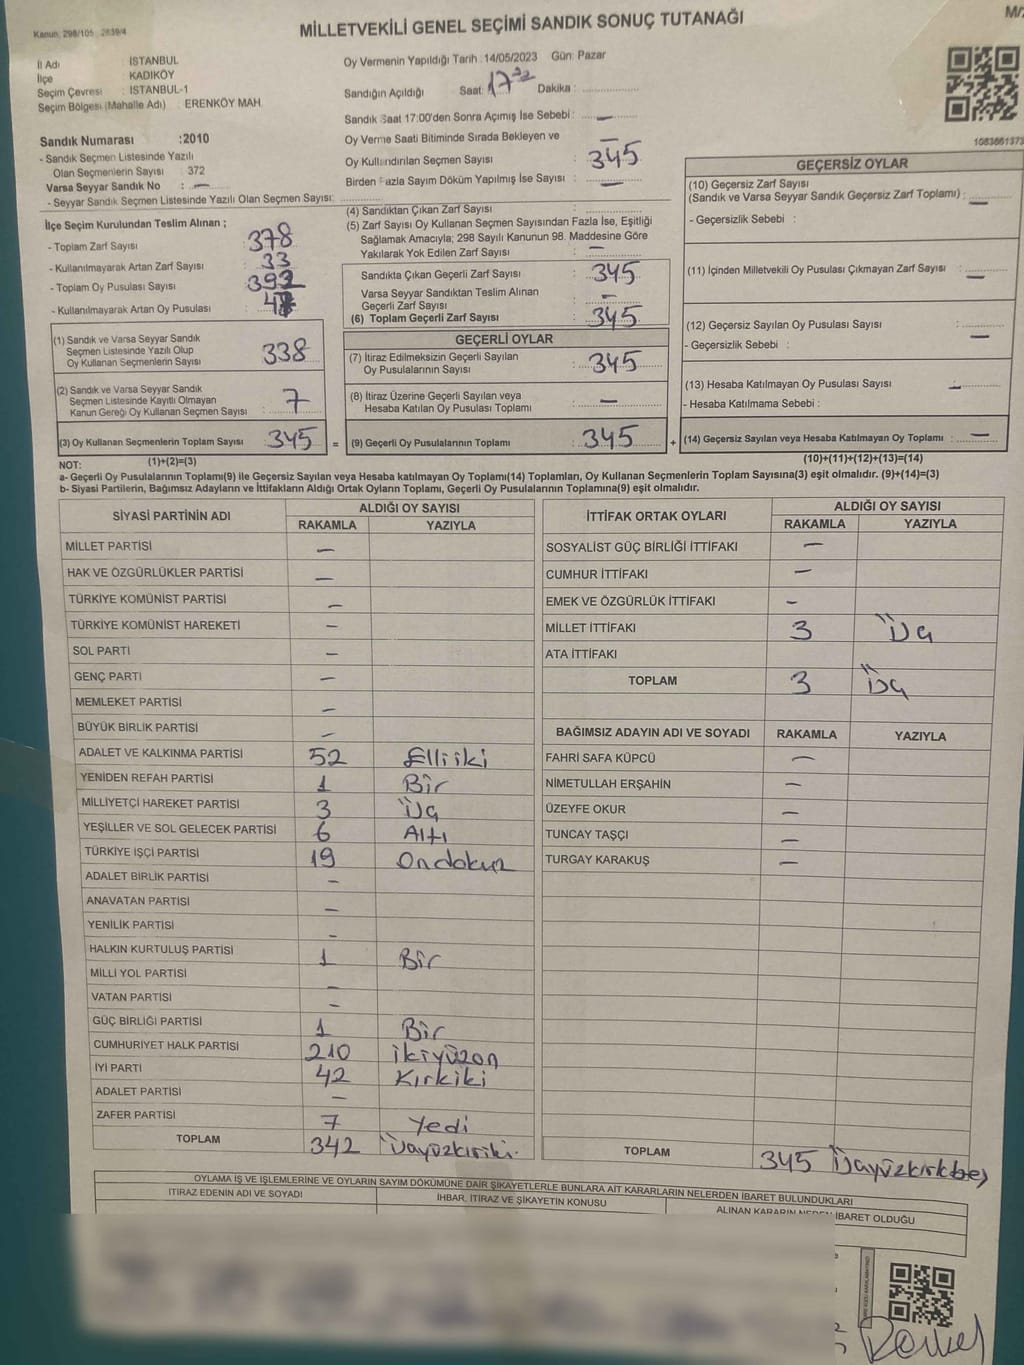 Kanun: 298/105, 2839/4
MİLLETVEKİLİ GENEL SEÇİMİ SANDIK SONUÇ TUTANAĞI
M/
İl Adı : İSTANBUL
İlçe : KADIKÖY
Seçim Çevresi : İSTANBUL-1
Seçim Bölgesi (Mahalle Adı) : ERENKÖY MAH.
Oy Vermenin Yapıldığı Tarih : 14/05/2023 Gün: Pazar
Sandığın Açıldığı Saat: 17 Dakika :
Sandık Saat 17:00'den Sonra Açımış İse Sebebi : —
Sandık Numarası :2010
- Sandık Seçmen Listesinde Yazılı
Olan Seçmenlerin Sayısı : 372
Varsa Seyyar Sandık No : —
- Seyyar Sandık Seçmen Listesinde Yazılı Olan Seçmen Sayısı:
Oy Verme Saati Bitiminde Sırada Bekleyen ve —
Oy Kullandırılan Seçmen Sayısı : 345
Birden Fazla Sayım Döküm Yapılmış İse Sayısı : —
1083661373
İlçe Seçim Kurulundan Teslim Alınan ;
- Toplam Zarf Sayısı : 378
- Kullanılmayarak Artan Zarf Sayısı : 33
- Toplam Oy Pusulası Sayısı : 392
- Kullanılmayarak Artan Oy Pusulası :
(1) Sandık ve Varsa Seyyar Sandık
Seçmen Listesinde Yazılı Olup
Oy Kullanan Seçmenlerin Sayısı : 338
(2) Sandık ve Varsa Seyyar Sandık
Seçmen Listesinde Kayıtlı Olmayan
Kanun Gereği Oy Kullanan Seçmen Sayısı : 7
(3) Oy Kullanan Seçmenlerin Toplam Sayısı : 345
(4) Sandıktan Çıkan Zarf Sayısı :
(5) Zarf Sayısı Oy Kullanan Seçmen Sayısından Fazla İse, Eşitliği
Sağlamak Amacıyla; 298 Sayılı Kanunun 98. Maddesine Göre
Yakılarak Yok Edilen Zarf Sayısı : —
Sandıkta Çıkan Geçerli Zarf Sayısı : 345
Varsa Seyyar Sandıktan Teslim Alınan
Geçerli Zarf Sayısı : —
(6) Toplam Geçerli Zarf Sayısı : 345
GEÇERLİ OYLAR
(7) İtiraz Edilmeksizin Geçerli Sayılan
Oy Pusulalarının Sayısı : 345
(8) İtiraz Üzerine Geçerli Sayılan veya
Hesaba Katılan Oy Pusulası Toplamı : —
= (9) Geçerli Oy Pusulalarının Toplamı : 345
GEÇERSİZ OYLAR
(10) Geçersiz Zarf Sayısı
(Sandık ve Varsa Seyyar Sandık Geçersiz Zarf Toplamı) : —
- Geçersizlik Sebebi :
(11) İçinden Milletvekili Oy Pusulası Çıkmayan Zarf Sayısı : —
(12) Geçersiz Sayılan Oy Pusulası Sayısı : —
- Geçersizlik Sebebi :
(13) Hesaba Katılmayan Oy Pusulası Sayısı : —
- Hesaba Katılmama Sebebi :
+ (14) Geçersiz Sayılan veya Hesaba Katılmayan Oy Toplamı : —
NOT: (1)+(2)=(3)
(10)+(11)+(12)+(13)=(14)
a- Geçerli Oy Pusulalarının Toplamı(9) ile Geçersiz Sayılan veya Hesaba katılmayan Oy Toplamı(14) Toplamları, Oy Kullanan Seçmenlerin Toplam Sayısına(3) eşit olmalıdır. (9)+(14)=(3)
b- Siyasi Partilerin, Bağımsız Adayların ve İttifakların Aldığı Ortak Oyların Toplamı, Geçerli Oy Pusulalarının Toplamına(9) eşit olmalıdır.
SİYASİ PARTİNİN ADI ALDIĞI OY SAYISI
RAKAMLA YAZIYLA
MİLLET PARTİSİ —
HAK VE ÖZGÜRLÜKLER PARTİSİ —
TÜRKİYE KOMÜNİST PARTİSİ —
TÜRKİYE KOMÜNİST HAREKETİ —
SOL PARTİ —
GENÇ PARTİ —
MEMLEKET PARTİSİ —
BÜYÜK BİRLİK PARTİSİ —
ADALET VE KALKINMA PARTİSİ 52 Elliiki
YENİDEN REFAH PARTİSİ 1 Bir
MİLLİYETÇİ HAREKET PARTİSİ 3 Üç
YEŞİLLER VE SOL GELECEK PARTİSİ 6 Altı
TÜRKİYE İŞÇİ PARTİSİ 19 Ondokuz
ADALET BİRLİK PARTİSİ —
ANAVATAN PARTİSİ —
YENİLİK PARTİSİ —
HALKIN KURTULUŞ PARTİSİ 1 Bir
MİLLİ YOL PARTİSİ —
VATAN PARTİSİ —
GÜÇ BİRLİĞİ PARTİSİ 1 Bir
CUMHURİYET HALK PARTİSİ 210 ikiyüzon
İYİ PARTİ 42 Kırkiki
ADALET PARTİSİ —
ZAFER PARTİSİ 7 Yedi
TOPLAM 342 Üçyüzkırkiki
İTTİFAK ORTAK OYLARI ALDIĞI OY SAYISI
RAKAMLA YAZIYLA
SOSYALİST GÜÇ BİRLİĞİ İTTİFAKI —
CUMHUR İTTİFAKI —
EMEK VE ÖZGÜRLÜK İTTİFAKI —
MİLLET İTTİFAKI 3 Üç
ATA İTTİFAKI
TOPLAM 3 Üç
BAĞIMSIZ ADAYIN ADI VE SOYADI RAKAMLA YAZIYLA
FAHRİ SAFA KÜPCÜ —
NİMETULLAH ERŞAHİN —
ÜZEYFE OKUR —
TUNCAY TAŞÇI —
TURGAY KARAKUŞ —
TOPLAM 345 Üçyüzkırkbeş
OYLAMA İŞ VE İŞLEMLERİNE VE OYLARIN SAYIM DÖKÜMÜNE DAİR ŞİKAYETLERLE BUNLARA AİT KARARLARIN NELERDEN İBARET BULUNDUKLARI
İTİRAZ EDENİN ADI VE SOYADI İHBAR, İTİRAZ VE ŞİKAYETİN KONUSU ALINAN KARARIN NEDEN İBARET OLDUĞU